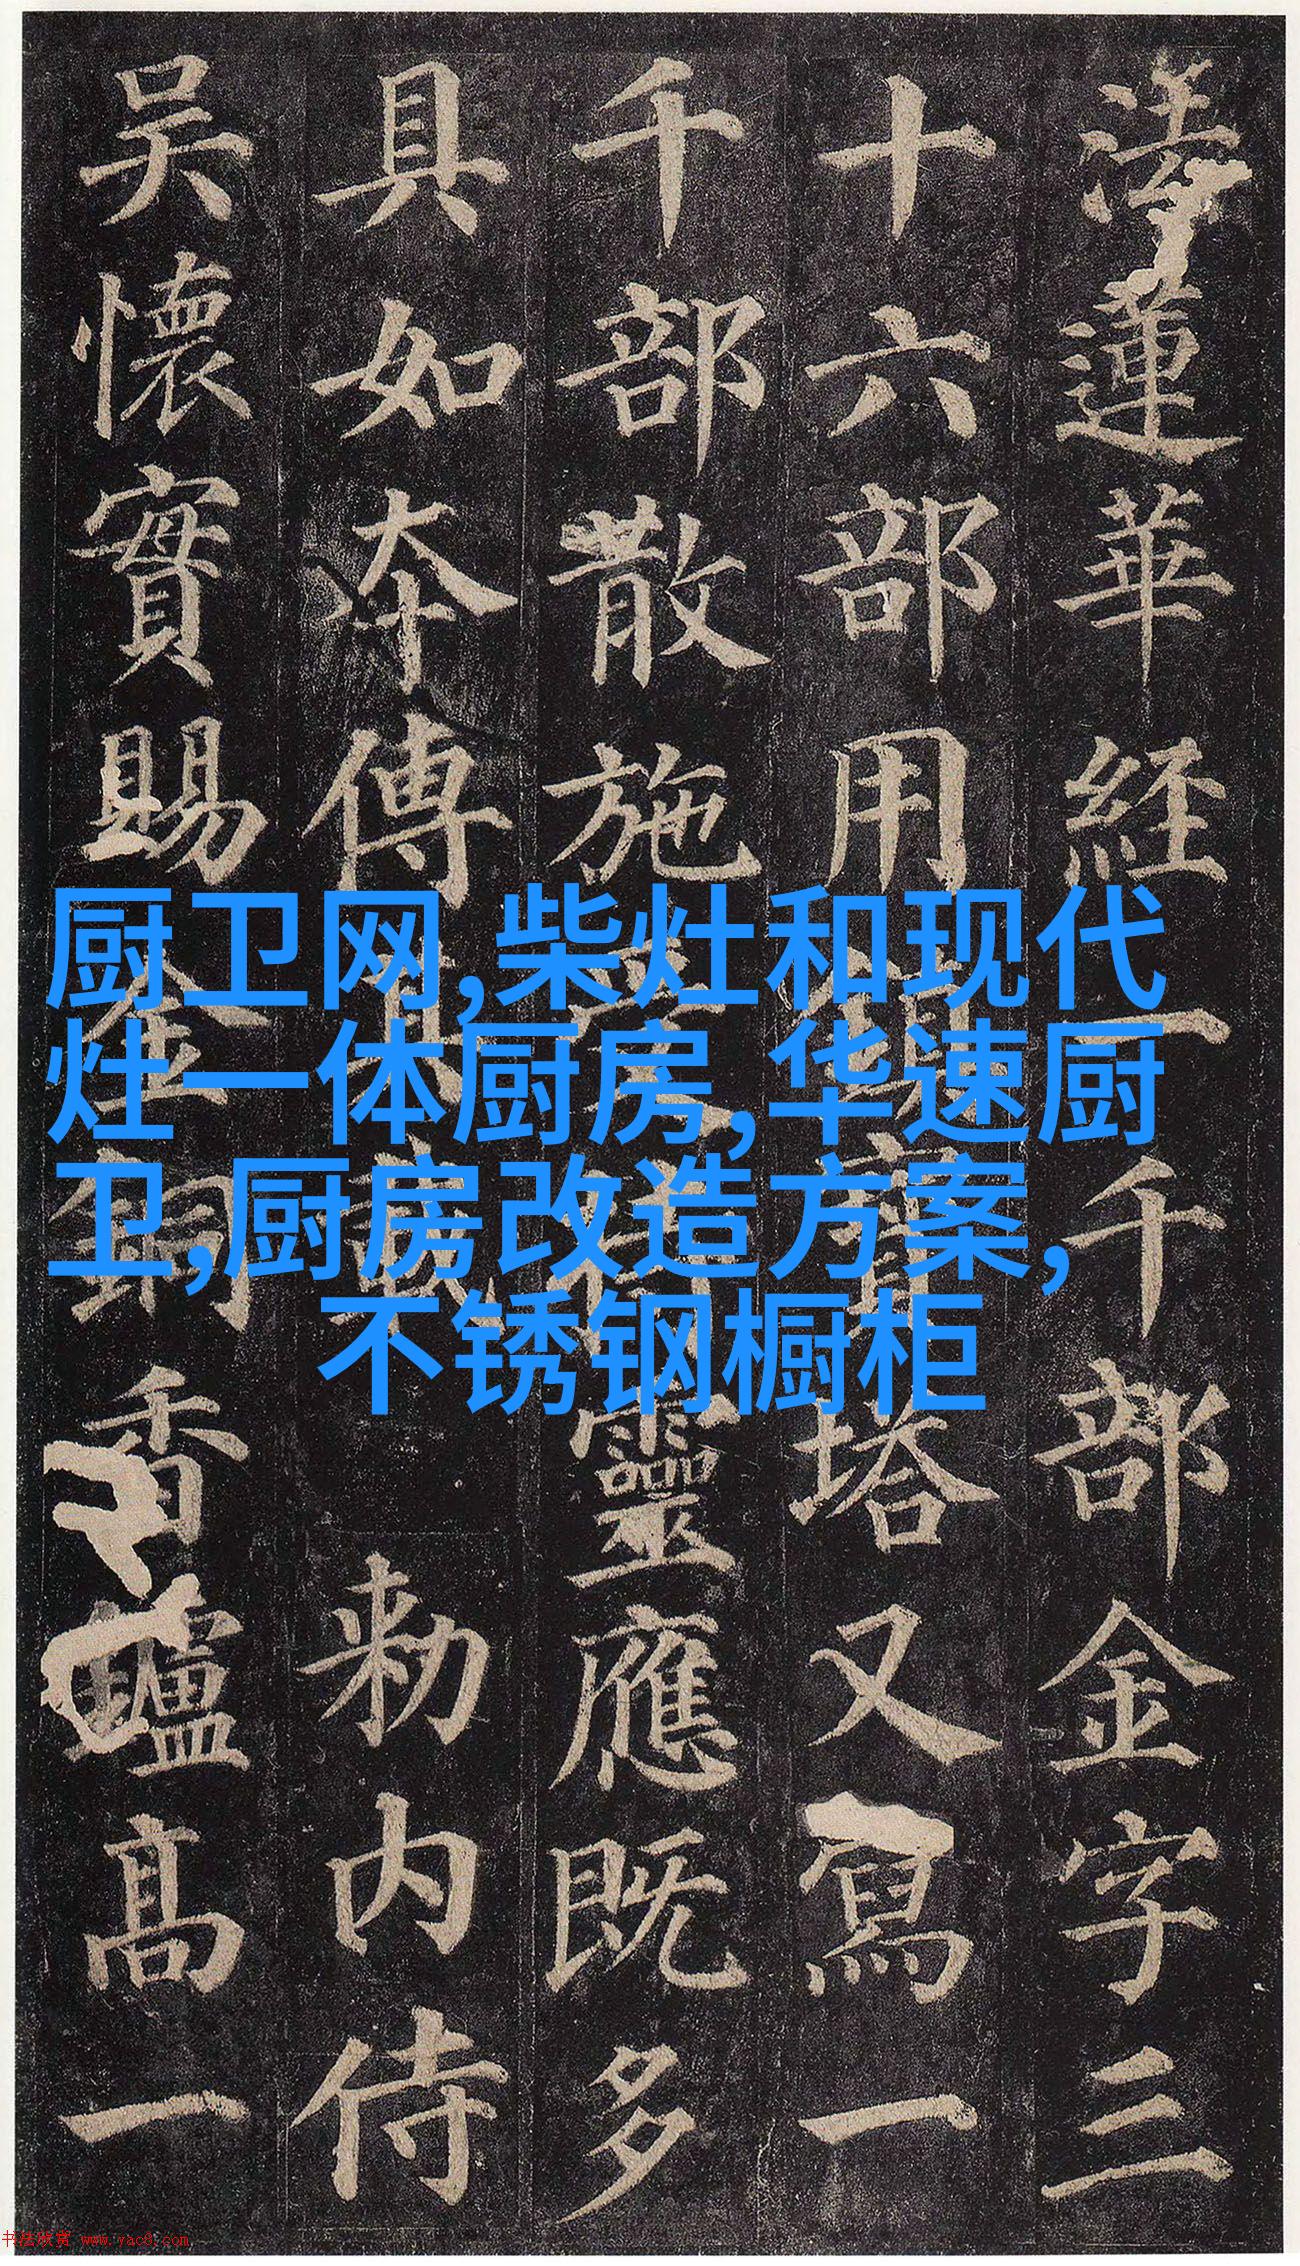 法蓮華經一千部金字三
十六部用鎮寶塔又寫一
千部散施受持靈應既多
具如本傳其載勅内侍
吳懷實賜金銅香爐高一
厨卫网,柴灶和现代
灶一体厨房,华速厨
卫,厨房改造方案,
不锈钢橱柜
书法欣赏 www.yac8.com